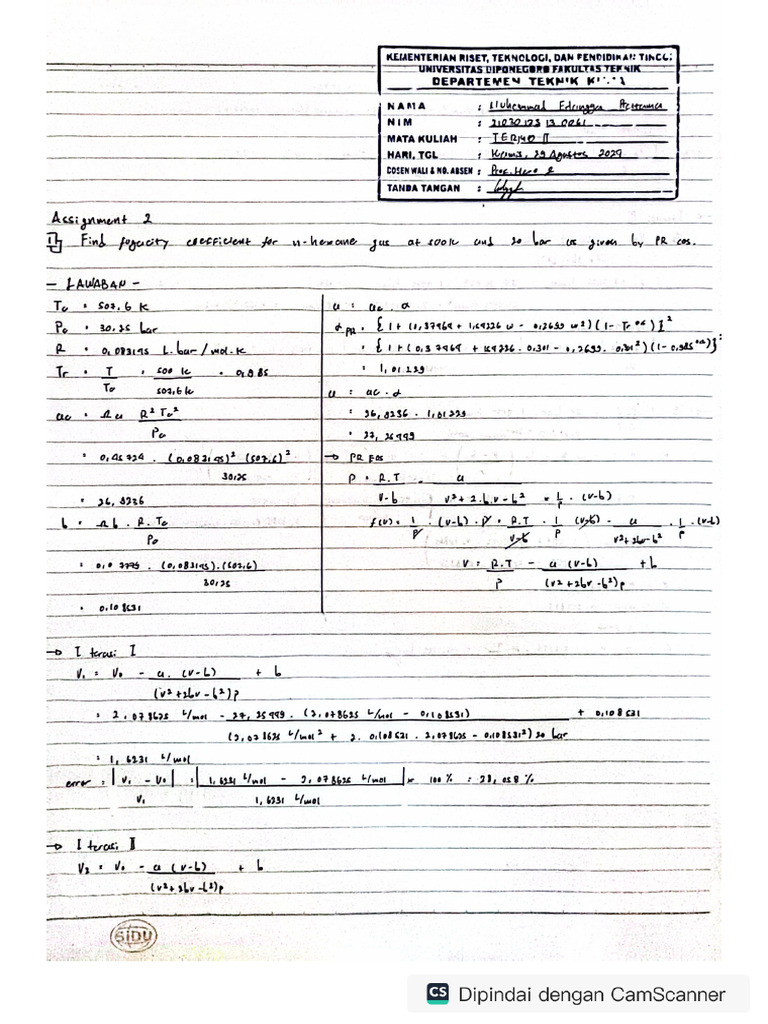 KEMENTERIAN RISET, TEKNOLOGI, DAN PENDIDIKAN TINGGI
UNIVERSITAS DIPONEGORO FAKULTAS TEKNIK
DEPARTEMEN TEKNIK KIMIA
NAMA : Muhammad
NIM :
MATA KULIAH : TERMO II
HARI, TGL : Kamis, 29 Agustus 2024
DOSEN WALI & NO. ABSEN : Prof. Hero
TANDA TANGAN :
Assignment 2
1 Find fogacity coefficient for n-hexane gas at 500 K and 20 bar as given by PR eos.
- JAWABAN -
Tc = 507,6 K
Pc = 30,25 bar
R = 0,083145 L.bar/mol.K
Tr = T / Tc = 500 K / 507,6 K = 0,985
ac = Ωa R² Tc² / Pc
= 0,45724 . (0,083145)² (507,6)² / 30,25
= 26,9236
b = Ωb . R. Tc / Pc
= 0,07779 . (0,083145).(507,6) / 30,25
= 0,108531
a = ac . α
α PR = {1 + (0,37464 + 1,54226 ω - 0,2699 ω²)(1 - Tr^0,5)}²
= {1 + (0,37464 + 1,54226 . 0,301 - 0,2699 . 0,301²)(1 - 0,985^0,5)}²
= 1,01239
a = ac . α
= 26,9236 . 1,01239
= 27,25999
→ PR EOS
P = R.T / v-b - a / v²+2.b.v-b² × 1/P . (v-b)
f(v) = 1/P . (v-b) . P = R.T / v-b . 1/P (v-b) - a / v²+2bv-b² . 1/P . (v-b)
v = R.T / P - a (v-b) / (v²+2bv-b²)P + b
→ Iterasi I
V₁ = V₀ - a. (v-b) / (v²+2bv-b²)P + b
= 2,078625 L/mol - 27,25999 . (2,078625 L/mol - 0,108531) / (2,078625 L/mol² + 2. 0,108531 . 2,078625 - 0,108531²) 20 bar + 0,108531
= 1,6231 L/mol
error = |V₁ - V₀ / V₁| = |1,6231 L/mol - 2,078625 L/mol / 1,6231 L/mol| × 100 % = 28,058 %
→ Iterasi II
V₂ = V₀ - a (v-b) / (v²+2bv-b²)P + b
SIDU
CS Dipindai dengan CamScanner